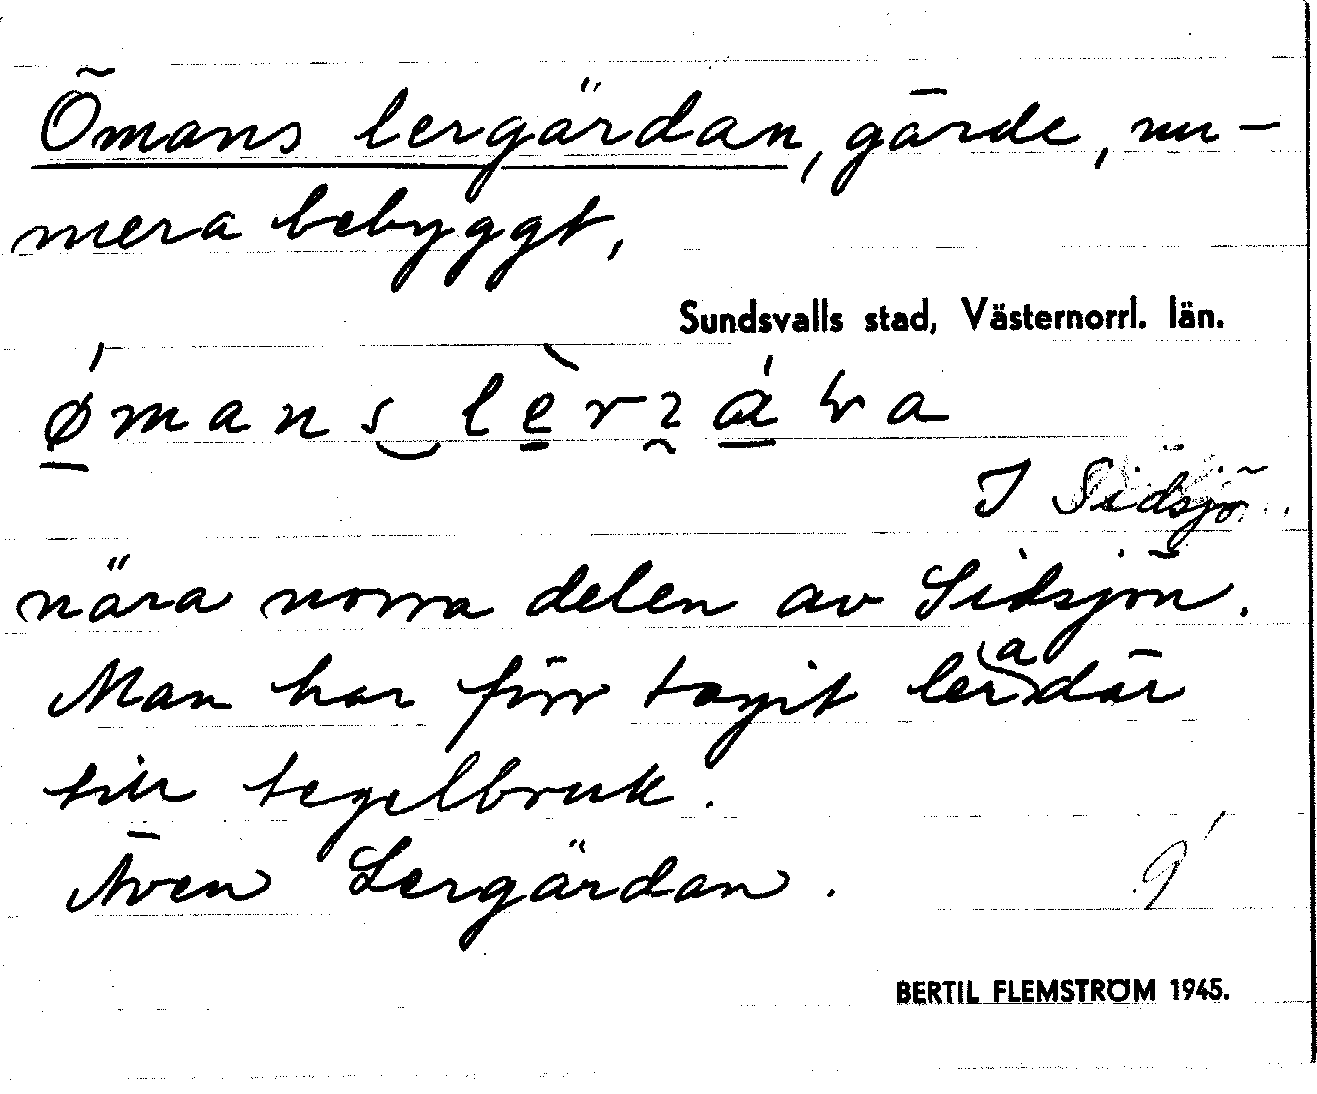 Ömans lergärdan, gärde, nu-
mera bebyggt,
Sundsvalls stad, Västernorrl. län.
I Sidsjö
nära norra delen av Sidsjön.
Man har förr tagit lera där
till tegelbruk.
Även Lergärdan.
BERTIL FLEMSTRÖM 1945.